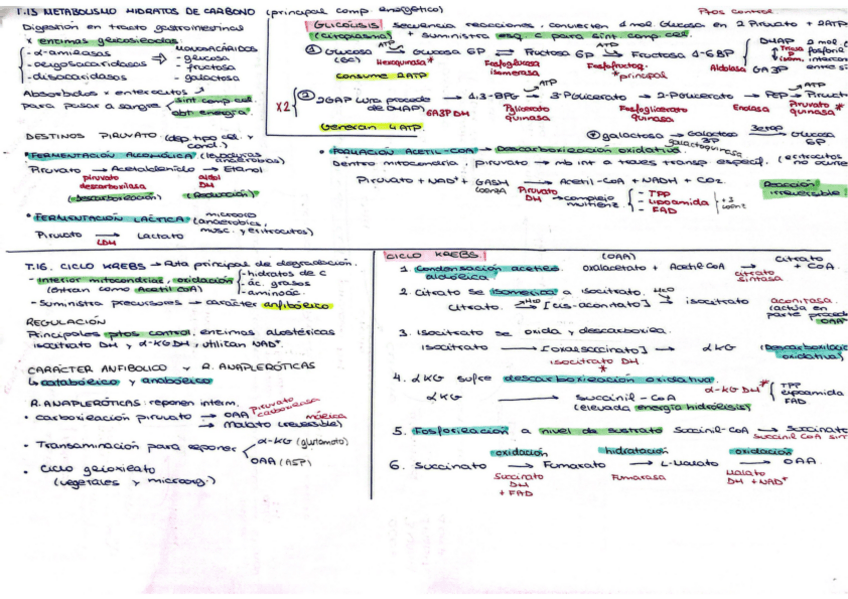 T.15 METABOLISMO HIDRATOS DE CARBONO (principal comp. energético)
Digestión en tracto gastrointestinal
x enzimas glicosidasas
- α-amilasas
- oligosacaridasas
- disacaridasas
MONOSACÁRIDOS
- glucosa
- fructosa
- galactosa
Absorbidos x enterocitos
para pasar a sangre
sint comp cel.
obt energía.
Ptos control
GLICOLISIS secuencia reacciones, convierten 1 mol Glucosa en 2 Piruvato + 2ATP
(citoplasma) + suministra esq. C para sint comp. cel.
① Glucosa → Glucosa 6P → Fructosa 6P → Fructosa 1-6BP
(6C)
ATP
ATP
Hexoquinasa*
Fosfoglucosa
isomerasa
Fosfofructoq.
*principal
Aldolasa
DHAP
GA3P
Triosa
P
isom.
2 mol.
fosforila
intercon
entre si
consume 2ATP
x2
② 2GAP (uno procede de DHAP) → 1,3-BPG → 3-Piloerato → 2-Policerato → PEP → Piruct
ATP
ATP
GA3P DH
Pglicerato
quinasa
Fosfoglicerato
quinasa
Enolasa
Piruvato *
quinasa
Generan 4ATP.
galactosa → Galactosa 3P → Glucosa 6P
3etap
galactoquinasa
DESTINOS PIRUVATO (dep. tipo cel. y cond.)
• FERMENTACIÓN ALCOHÓLICA (levaduras anaerobias)
Piruvato → Acetaldehído → Etanol
piruvato
descarboxilasa
alcohol
DH
(Descarboxilación) (Reducción)
• FERMENTACIÓN LÁCTICA (microorg anaerobios, musc. y eritrocitos)
Piruvato → Lactato
LDH
• FORMACIÓN ACETIL-COA → Descarboxilación oxidativa.
Dentro mitocondria, piruvato → mb int a través transp especif. (eritrocitos no ocurre
Piruvato + NAD⁺ + → Acetil-CoA + NADH + CO₂.
Piruvato
DH → complejo
multienz.
- TPP
- Lipoamida
- FAD
+3
coenz
Reacción
irreversible!
T.16. CICLO KREBS → Ruta principal de degradación.
- Interior mitocondrias, oxidación
(entran como Acetil CoA)
- hidratos de C
- ác. grasos
- aminoác.
- Suministra precursores → carácter anfibólico
REGULACIÓN
Principales ptos control, enzimas alostéricas
isocitrato DH y α-KGDH, utilizan NAD⁺.
CARÁCTER ANFIBÓLICO y R. ANAPLERÓTICAS
↳ catabólico y anabólico
R. ANAPLERÓTICAS: reponen interm.
• Carboxilación piruvato → OAA
piruvato
carboxilasa
→ Malato (reversible)
málica
• Transaminación para reponer
α-KG (glutamato)
OAA (ASP)
• Ciclo glioxilato
(vegetales y microorg.)
CICLO KREBS.
1. Condensación acetilo
aldólica
(OAA)
oxalacetato + Acetil CoA → citrato + CoA.
citrato
sintasa
2. Citrato se isomeriza a isocitrato.
citrato. → [cis-aconitato] → isocitrato
H₂O
H₂O
aconitasa
(actúa en
parte procede
OAA
3. Isocitrato se oxida y descarboxila.
isocitrato → [oxalsuccinato] → αKG
isocitrato DH
*
(Descarboxilació
oxidativa)
4. αKG sufre descarboxilación oxidativa.
αKG → Succinil-CoA
α-KG DH*
TPP
Lipoamida
FAD
(elevada energía hidrólisis)
5. Fosforilación a nivel de sustrato Succinil-CoA → Succinato
succinil CoA sin
6. Succinato → Fumarato → L-Malato → OAA.
oxidación
hidratación
oxidación
Succinato
DH
+ FAD
Fumarasa
Malato
DH + NAD⁺